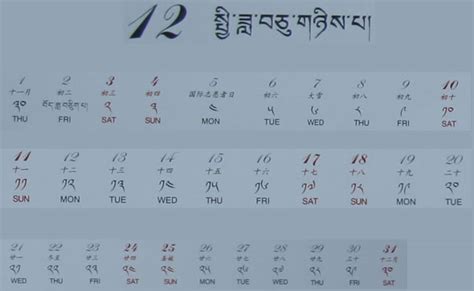 12 སྤྱི་ཟླ་བཅུ་གཉིས་པ།
1 2 3 4 5 6 7 8 9 10
十一月 初二 初三 初四 国际志愿者日 初六 大雪 初八 初九 初十
༣༠ བོད་ཟླ་བཅུ་པ། ༢ ༣ ༤ ༥ ༨ ༩ ༡༠
THU FRI SAT SUN MON TUE WED THU FRI SAT
11 12 13 14 15 16 17 18 19 20
十一 十二 十三 十四 十五 十六 十七 十八 十九 二十
༡༡ ༡༢ ༡༣ ༡༤ ༡༥ ༡༦
SUN MON TUE WED THU FRI SAT SUN MON TUE
21 22 23 24 25 26 27 28 29 30 31
廿一 冬至 廿三 廿四 圣诞 廿六 廿七 廿八 廿九 三十 十二月
WED THU FRI SAT SUN MON TUE WED THU FRI SAT